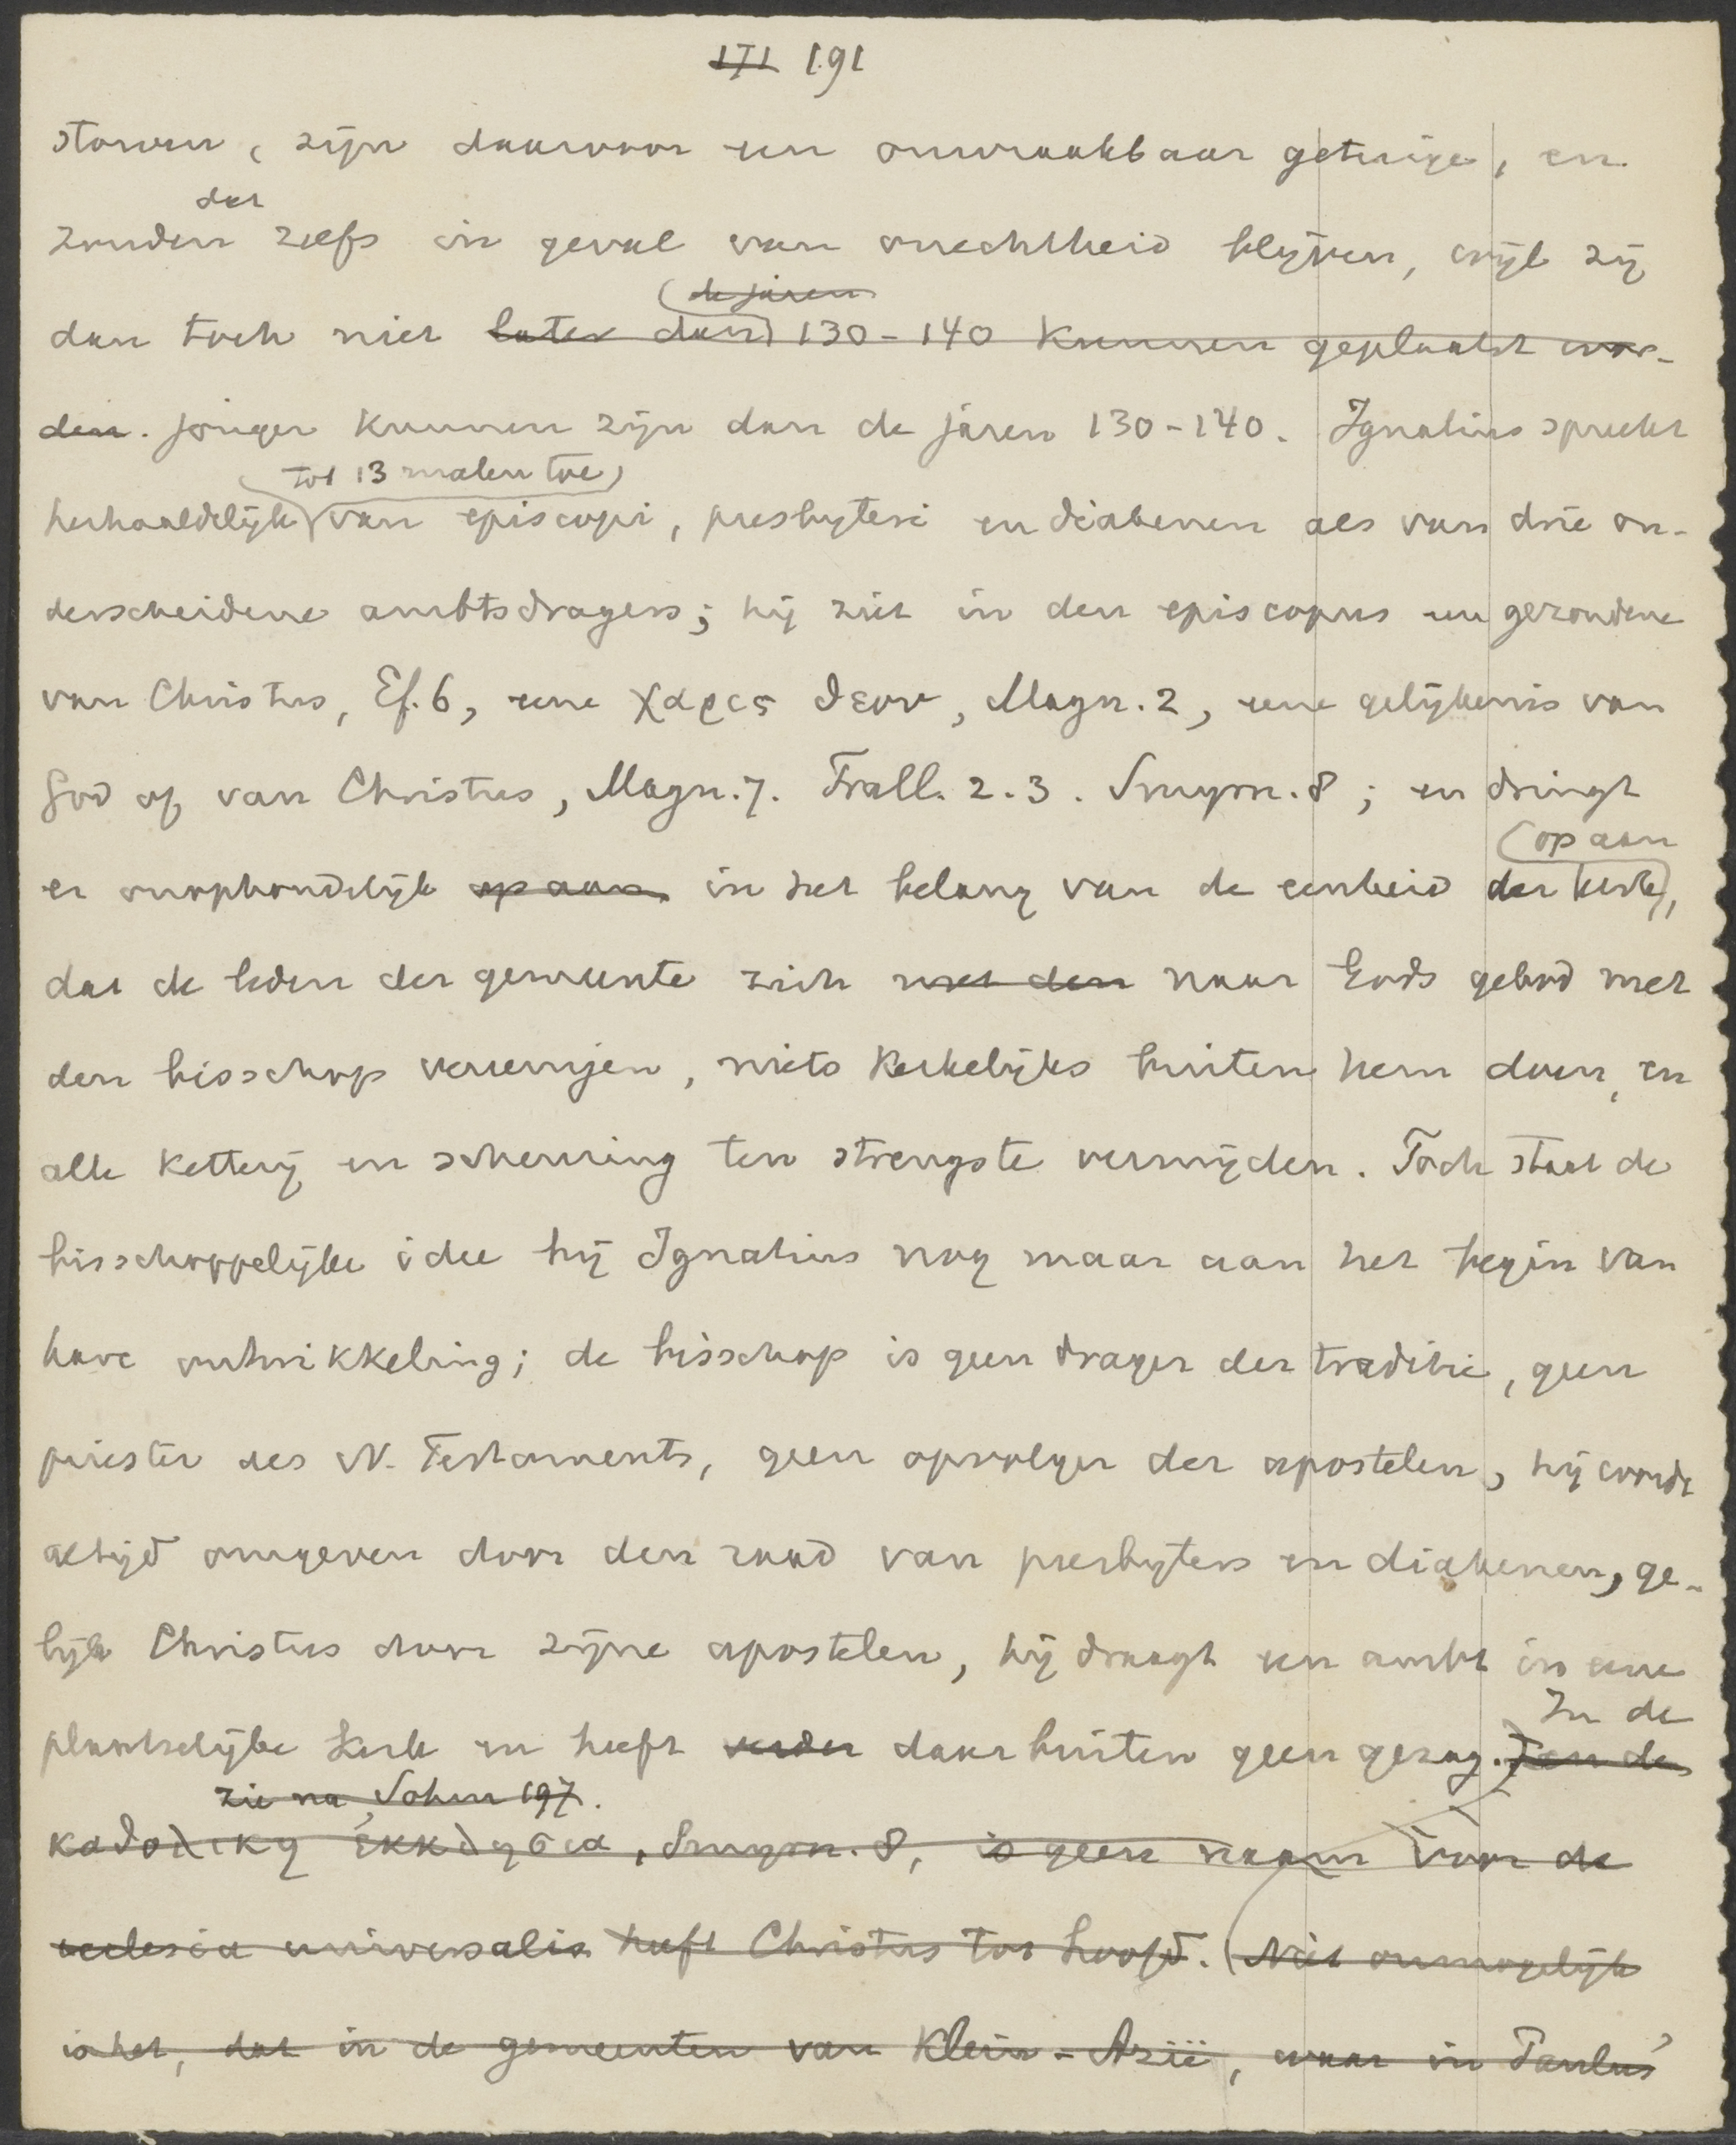 171 191
staven, zijn daarvoor een onwraakbaar getuige, en
dat
zouden zelfs in geval van onechtheid blijven, wijl zij
de jaren
dan toch niet later dan 130-140 kunnen geplaatst wor-
den. jonger kunnen zijn dan de jaren 130-140. Ignatius spreekt
tot 13 malen toe
herhaaldelijk van episcopi, presbyteri en diakenen als van drie on-
derscheidene ambtsdragers; hij ziet in den episcopus een gezondene
van Christus, Ef. 6, eene χαρις θεου, Magn. 2, eene gelijkenis van
God of van Christus, Magn. 7. Trall. 2. 3. Smyrn. 8; en dringt
op aan
er onophoudelijk op aan in het belang van de eenheid der kerk,
dat de leden der gemeente zich met den naar Gods gebod met
den bisschop vereenigen, niets kerkelijks buiten hem doen, en
alle ketterij en scheuring ten strengste vermijden. Toch staat de
bisschoppelijke idee bij Ignatius nog maar aan het begin van
hare ontwikkeling; de bisschop is geen drager der traditie, geen
priester des N. Testaments, geen opvolger der apostelen, hij wordt
altijd omgeven door den raad van presbyters en diakenen, ge-
lijk Christus door zijne apostelen, hij draagt een ambt in eene
In de
plaatselijke kerk en heeft verder daarbuiten geen gezag. En de
zie na Sohm 197.
καθολικη ἐκκλησια, Smyrn. 8, is geen naam voor de
ecclesia universalis heeft Christus tot hoofd. Niet onmogelijk
is het, dat in de gemeenten van Klein-Azië, waar in Paulus'